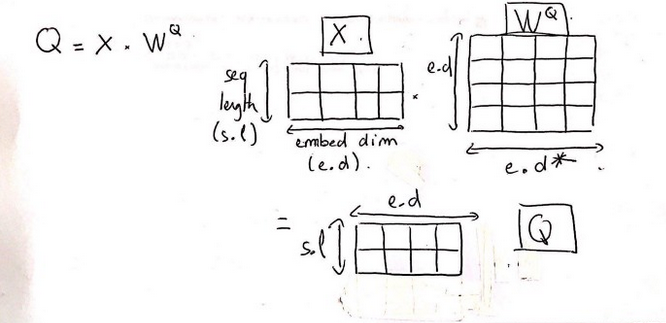 Q = X . W^Q
X .
W^Q .
seq
length
(s.l)
embed dim
(e.d) .
.
e.d
e.d* .
=
e.d
s.l
Q